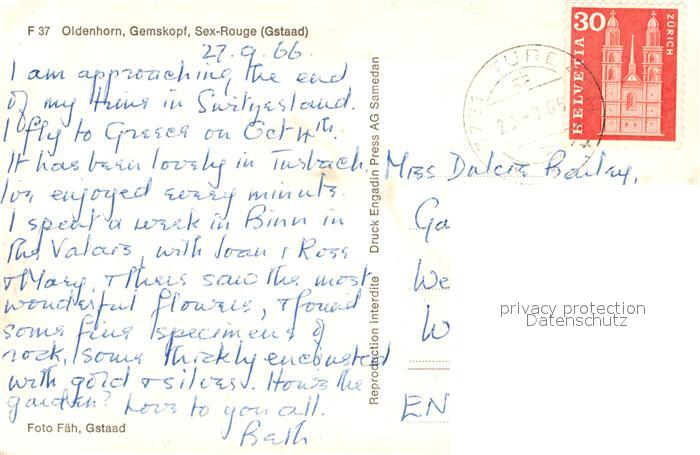 F 37 Oldenhorn, Gemskopf, Sex-Rouge (Gstaad)
27.9.66.
I am approaching the end
of my time in Switzerland.
I fly to Greece on Oct 4th.
It has been lovely in Turbach.
I've enjoyed every minute.
I spent a week in Binn in
the Valais, with Joan & Rose
& Mary, & there saw the most
wonderful flowers, & found
some fine specimens of
rock, some thickly encrusted
with gold & silver. How's the
garden? Love to you all.
Beth
Foto Fäh, Gstaad
Reproduction interdite Druck Engadin Press AG Samedan
HELVETIA
30
ZÜRICH
TURB
Miss Dulcie Bailey,
Ga
We
W
EN
privacy protection
Datenschutz